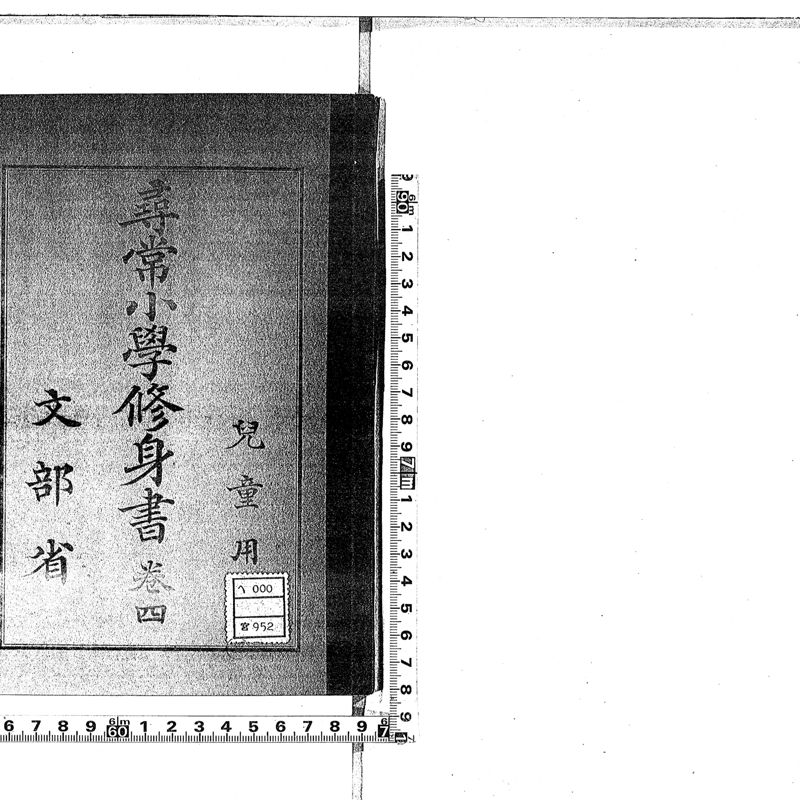 兒童用
尋常小學修身書 卷四
文部省
ヘ 000
宮 952
6m
90 1 2 3 4 5 6 7 8 9
1 2 3 4 5 6 7 8 9
6 7 8 9 6m 60 1 2 3 4 5 6 7 8 9 6 7